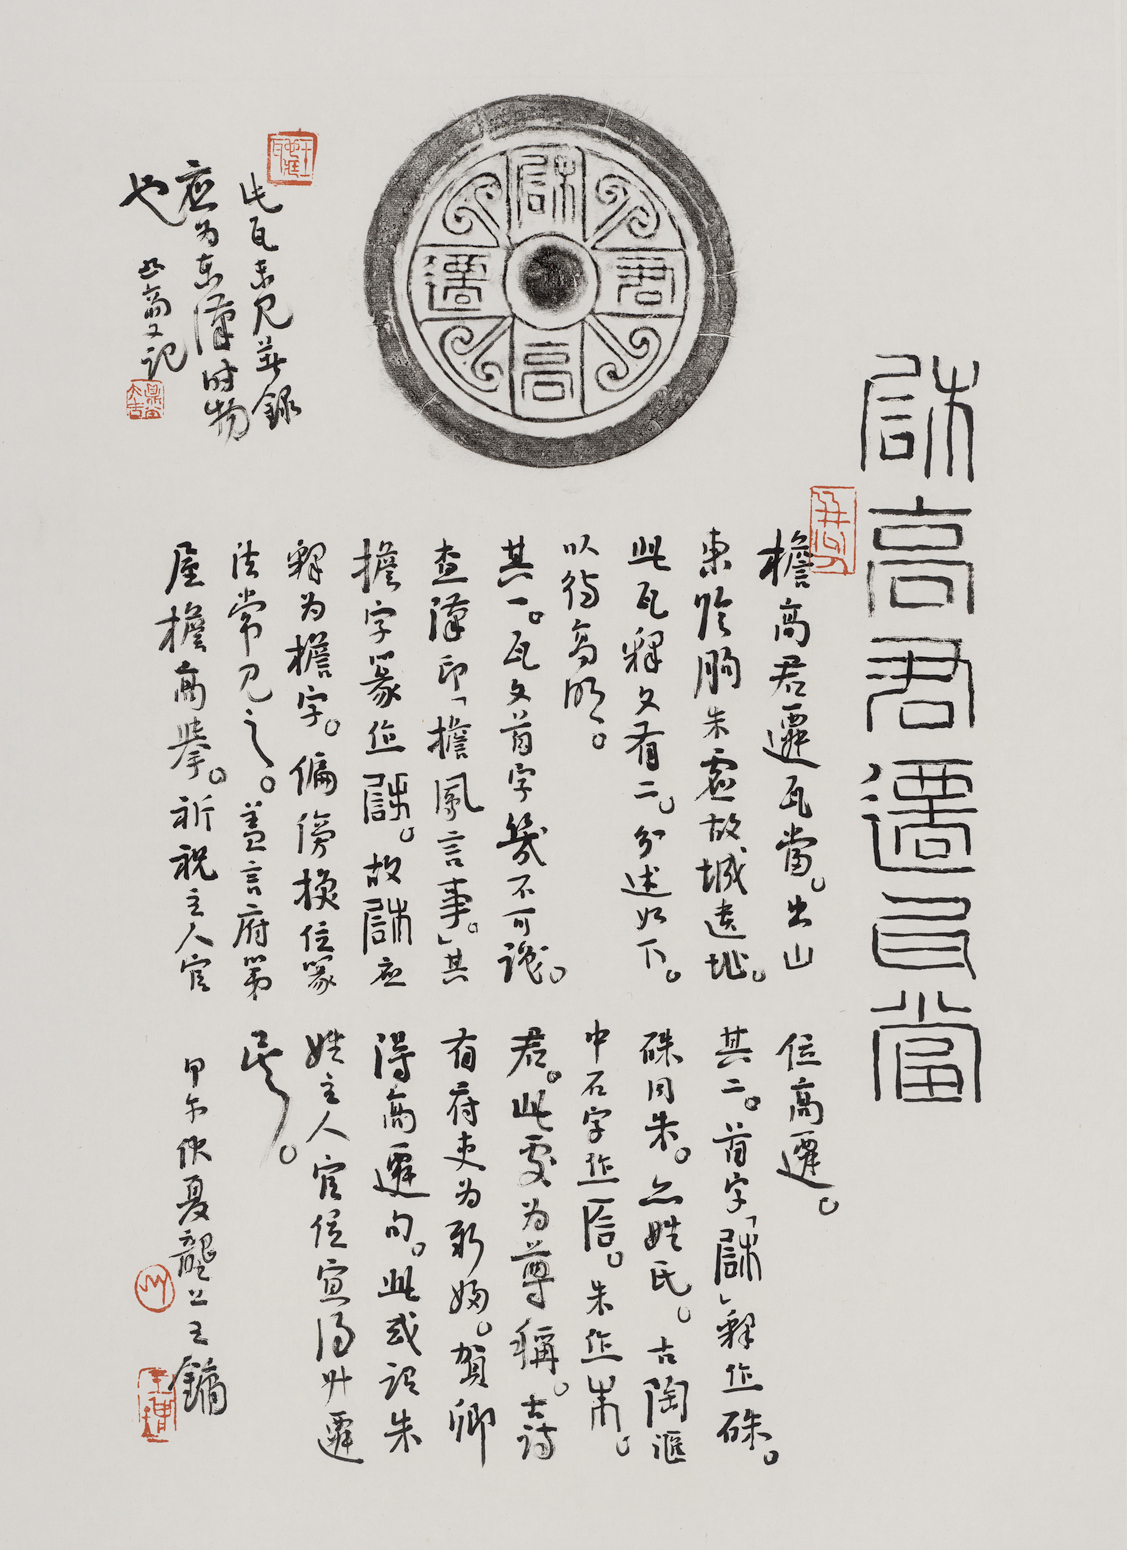 高君遷瓦當
檐高君遷瓦當。出山
東临朐朱虚故城遗址。
此瓦释文有二。分述如下。
以待高明。
其一。瓦文首字幾不可識。
查漢印「檐風言事。」其
擔字篆作。故应
釋为檐字。偏傍换位篆
法常见之。盖言府第
屋檐高擧。祈祝主人官
位高遷。
其二。首字「」釋作硃。
硃同朱。亦姓氏。古陶滙
中石字作。朱作朱。
君。此處为尊稱。古詩
有府吏为新婦。賀卿
得高遷句。此或谓朱
姓主人官位宜得升遷
矣。
甲午伏夏龍公王鏞
此瓦未见著録
应为东漢时物
也 又记
高君遷
王鏞